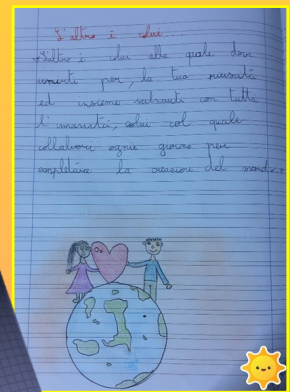 L'altro è colui...
L'altro è colui alla quale devi
per, la tua riuscita
ed insieme salvarti con tutta
l'umanità, colui col quale
collabori ogni giorno per
completare la creazione del mondo